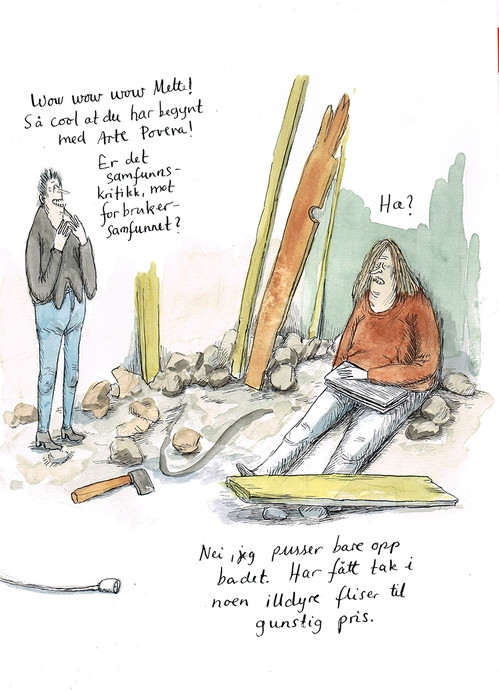 Wow wow wow Mette!
Så cool at du har begynt
med Arte Povera!
Er det
samfunns-
kritikk, mot
forbruker-
samfunnet?
Hæ?
Nei, jeg pusser bare opp
badet. Har fått tak i
noen illdyre fliser til
gunstig pris.